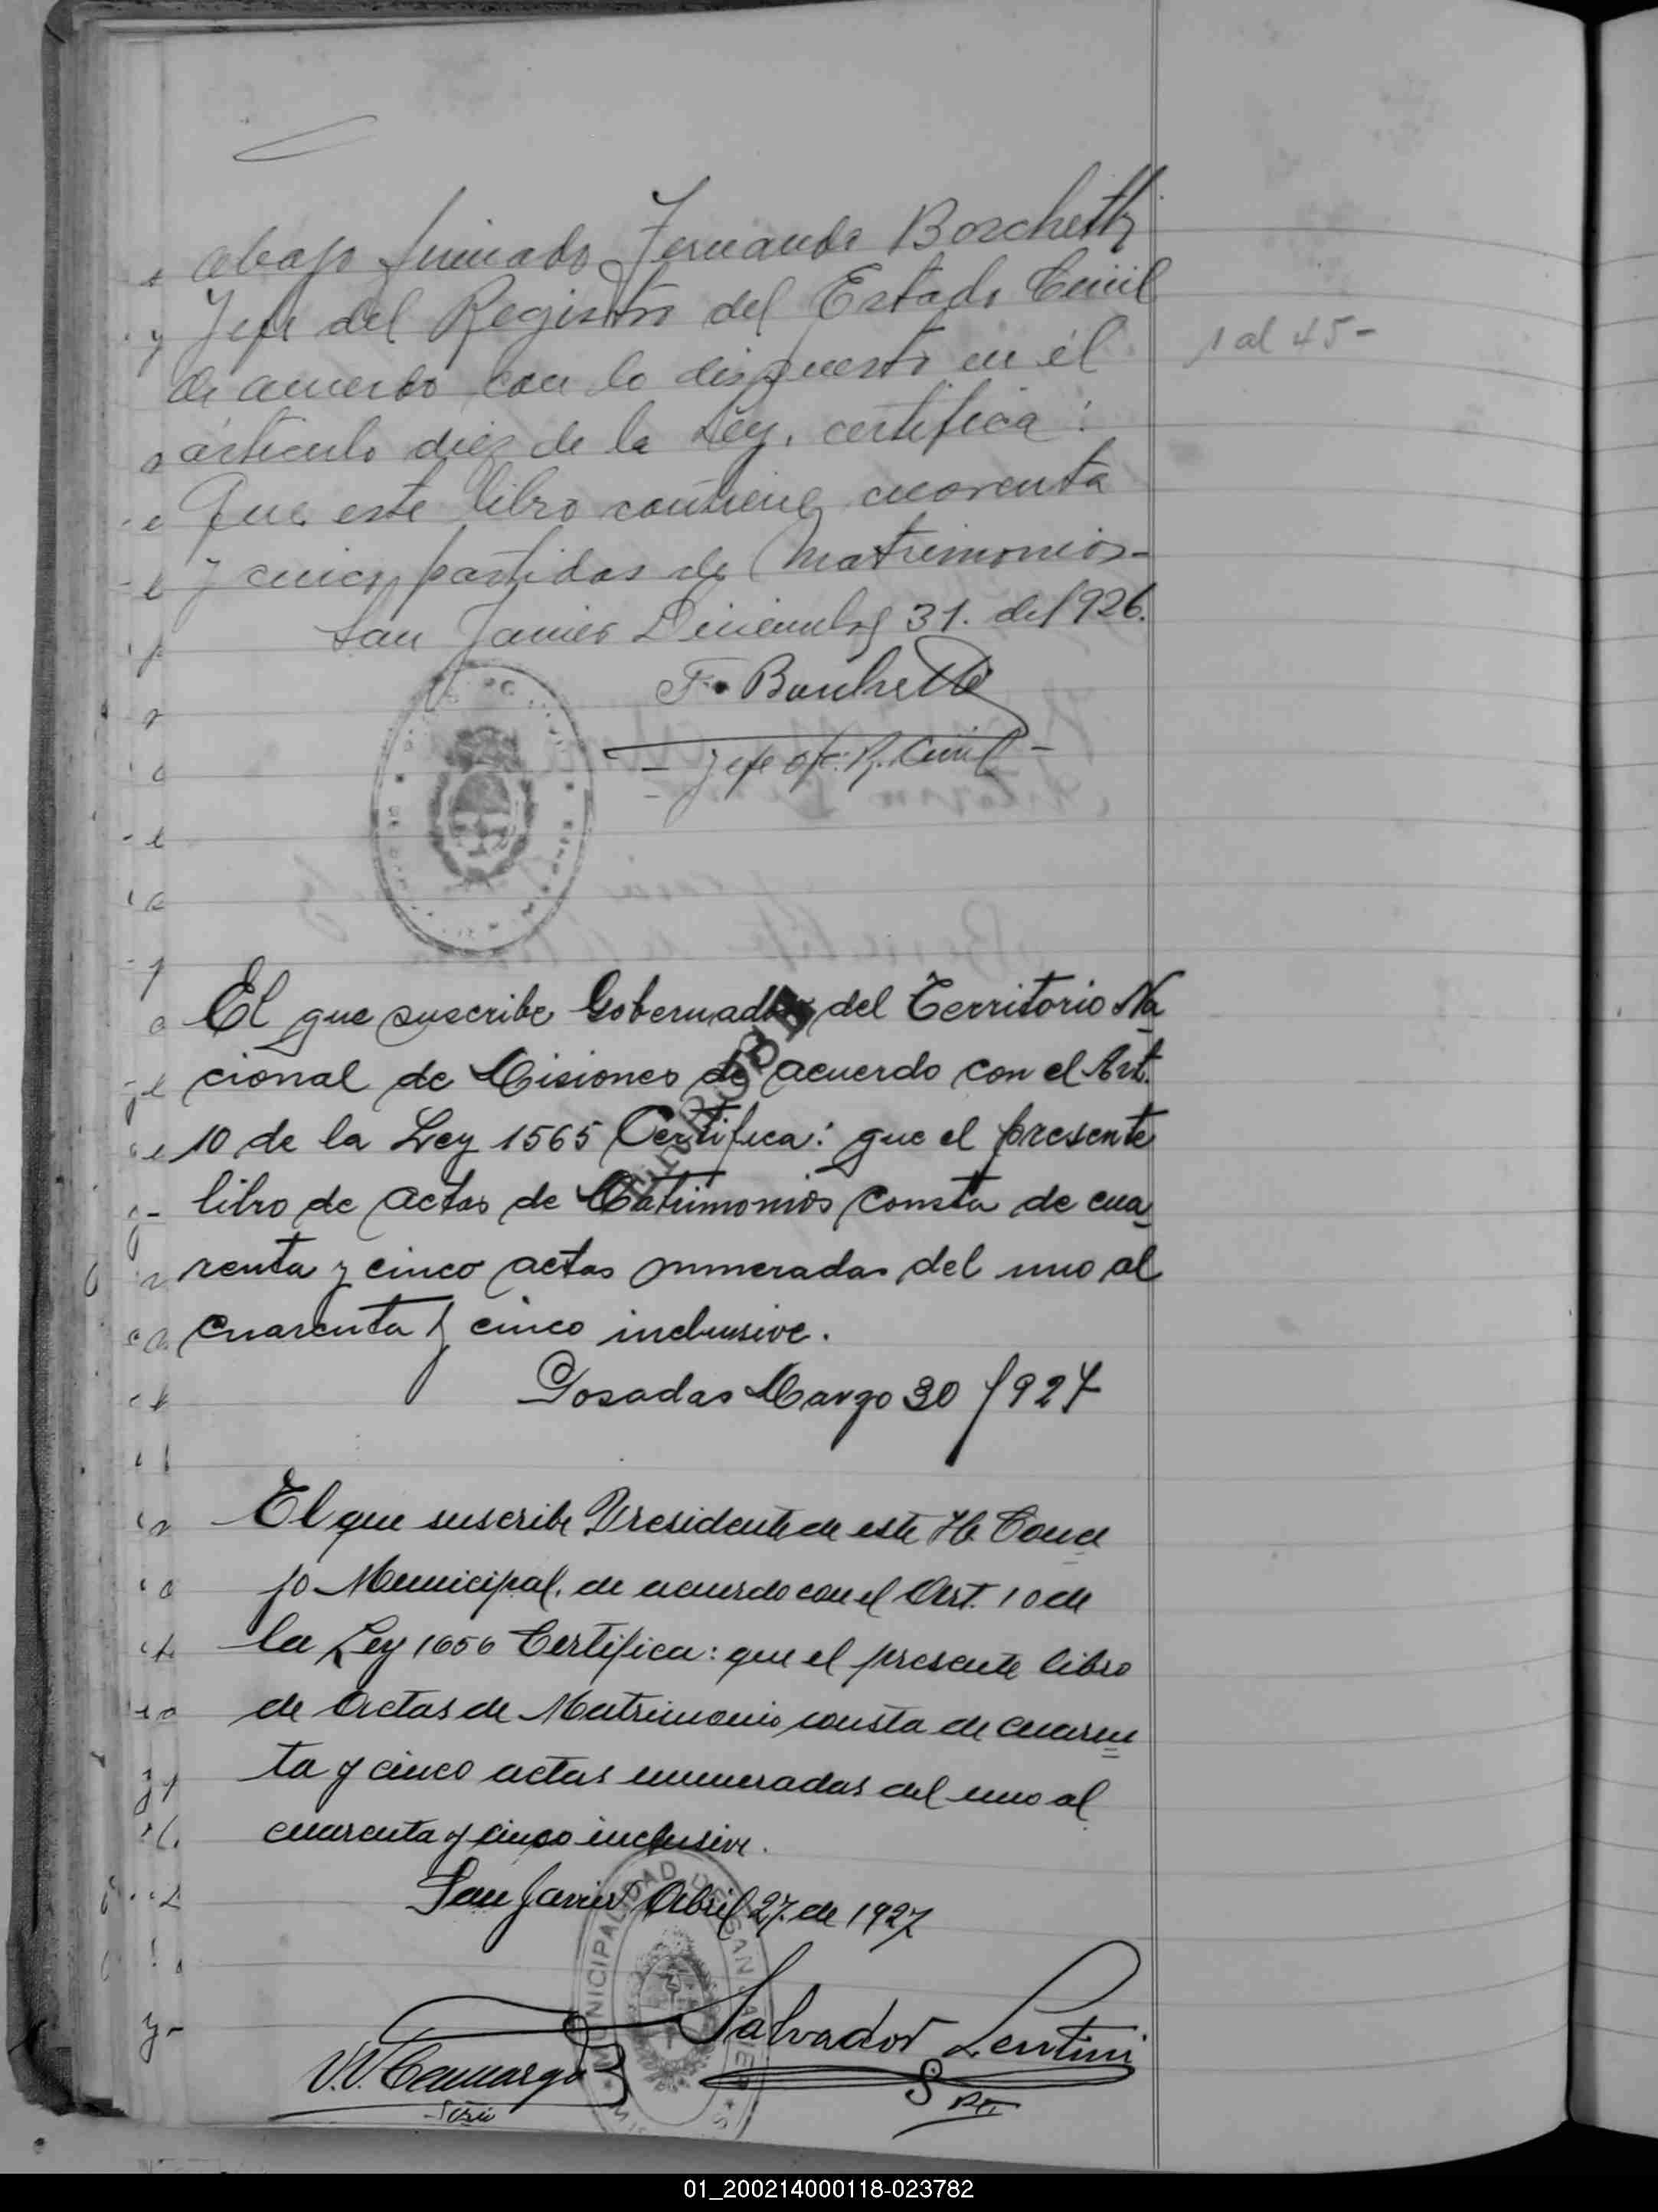 abajo firmado Fernando Borchetti
Jefe del Registro del Estado Civil
1 al 45-
de acuerdo con lo dispuesto en él
artículo diez de la Ley, certifica:
Que este libro contiene cuarenta
y cinco partidas de Matrimonios-
San Javier Diciembre 31. de 1926.
F. Borchetti
- Jefe Ofc. R. Civil -
El que suscribe Gobernador del Territorio Na
cional de Misiones de acuerdo con el Art.
10 de la Ley 1565 Certifica: que el presente
libro de actas de Matrimonios consta de cua
renta y cinco actas numeradas del uno al
cuarenta y cinco inclusive.
Posadas Marzo 30/1927
El que suscribe Presidente de este H. Conce
jo Municipal, de acuerdo con el Art. 10 de
la Ley 1656 Certifica: que el presente libro
de Actas de Matrimonio consta de cuaren
ta y cinco actas enumeradas del uno al
cuarenta y cinco inclusive.
San Javier Abril 27 de 1927
MUNICIPALIDAD DE SAN JAVIER
Salvador Lentini
V.V. Camargo
Srio
Pte
01_200214000118-023782